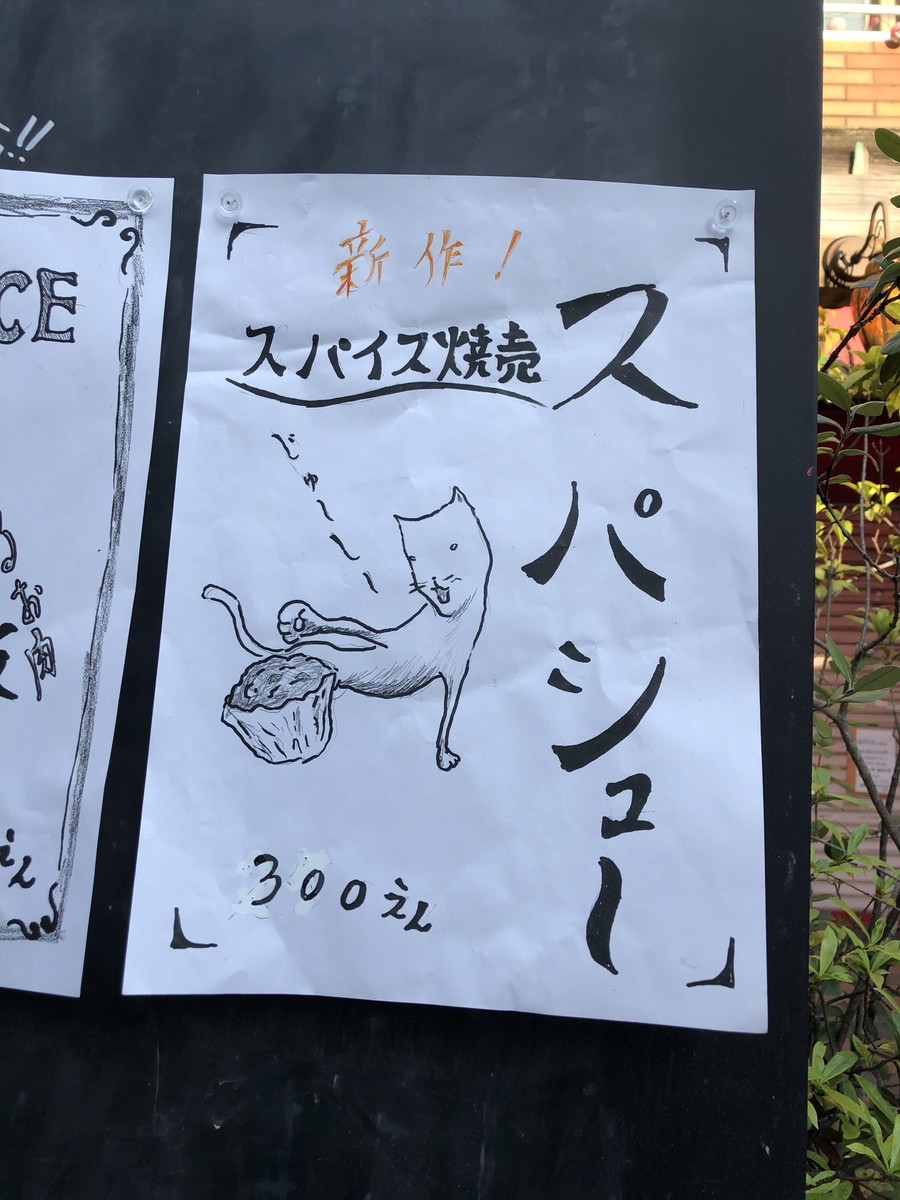 CE
お肉
えん
新作!
スパイス焼売
スパシュー
じゅ〜〜〜
300えん